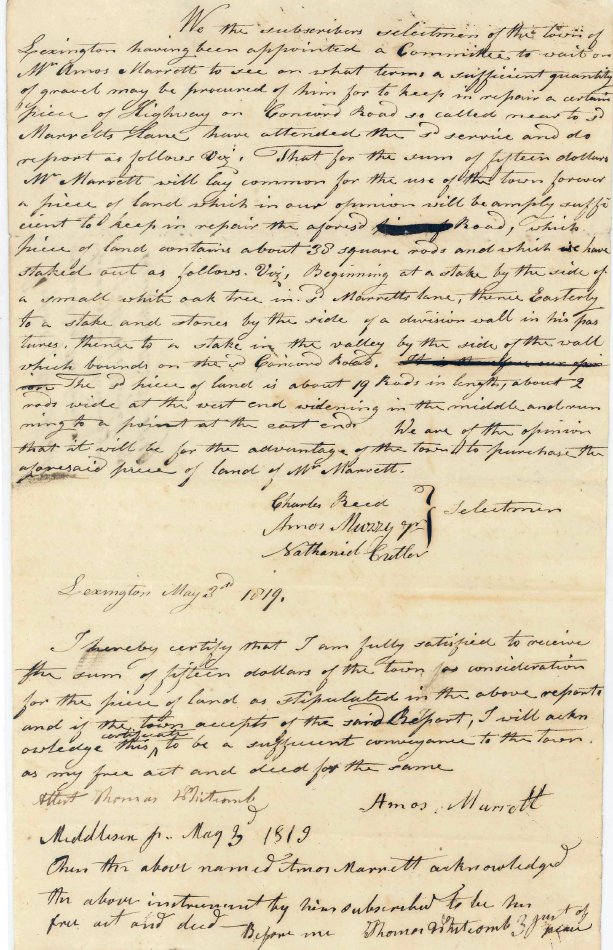 We the subscribers selectmen of the town of
Lexington having been appointed a Committee to wait on
Mr Amos Marrett to see on what terms a sufficient quantity
of gravel may be procured of him for to keep in repair a certain
piece of Highway on Concord Road so called near to sd
Marretts Lane have attended the sd service and do
report as follows Viz, That for the sum of fifteen dollars
Mr Marrett will lay common for the use of the town forever
a piece of land which in our opinion will be amply suffi
cient to keep in repair the aforesd Road, which
piece of land contains about 38 square rods and which we have
staked out as follows. Viz, Beginning at a stake by the side of
a small white oak tree in sd Marretts lane, thence Easterly
to a stake and stones by the side of a division wall in his pas
tures, thence to a stake in the valley by the side of the wall
which bounds on the sd Concord Road. It is the
The sd piece of land is about 19 Roads in length, about 2
rods wide at the west end widening in the middle and run
ning to a point at the east end We are of the opinion
that it will be for the advantage of the town to purchase the
aforesaid piece of land of Mr Marrett.
Charles Reed
Amos Muzzy Jr } Selectmen
Nathaniel Cutler
Lexington May 3rd 1819.
I hereby certify that I am fully satisfied to receive
the sum of fifteen dollars of the town as consideration
for the piece of land as stipulated in the above report
and if the town accepts of the said Report, I will ackn
owledge this certificate to be a sufficient conveyance to the town.
as my free act and deed for the same
Attest Thomas Whitcomb
Amos Marrett
Middlesex ss. May 3 1819
Then the above named Amos Marrett acknowledged
the above instrument by him subscribed to be his
free act and deed
Before me Thomas Whitcomb Just of
peace